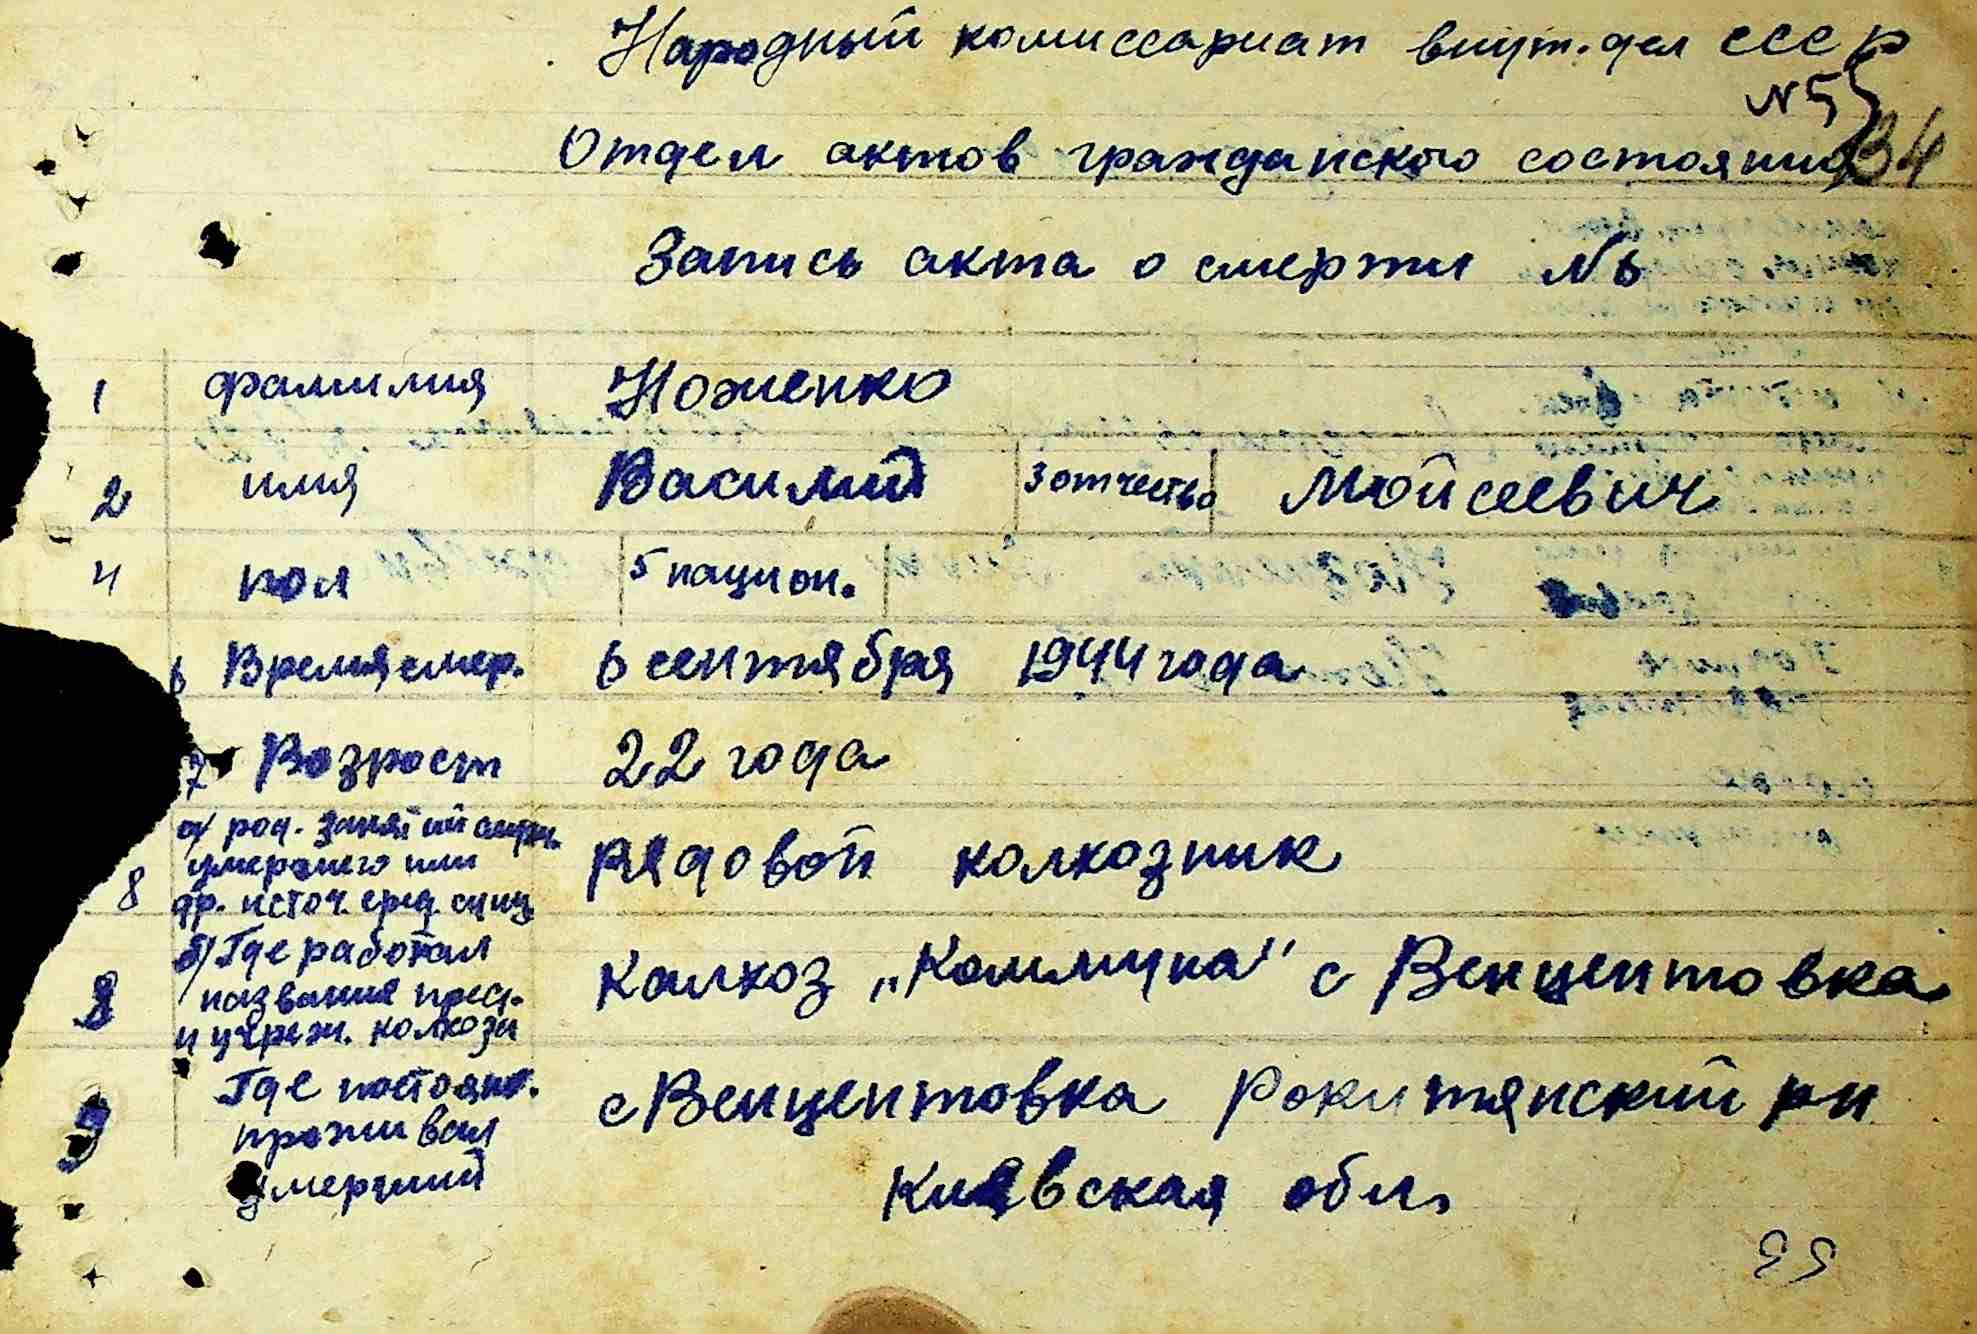 Народный комиссариат внут. дел СССР
N 55
34
Отдел актов гражданского состояния
Запись акта о смерти №
1 фамилия Ноженко
2 имя Василий 3 отчество Мойсеевич
4 пол 5 национ.
6 Время смер. 6 сентября 1944 года
7 Возраст 22 года
8 а/ род. занятий
умершего или
др. источ. сред. сущ.
рядовой колхозник
8 б/ Где работал
название пред.
и учреж. колхоза
Калхоз „Коммуна" с Венцентовка
9 Где постоян.
проживал
умерший
с Венцентовка Рокитянский рн
Киевская обл.
99